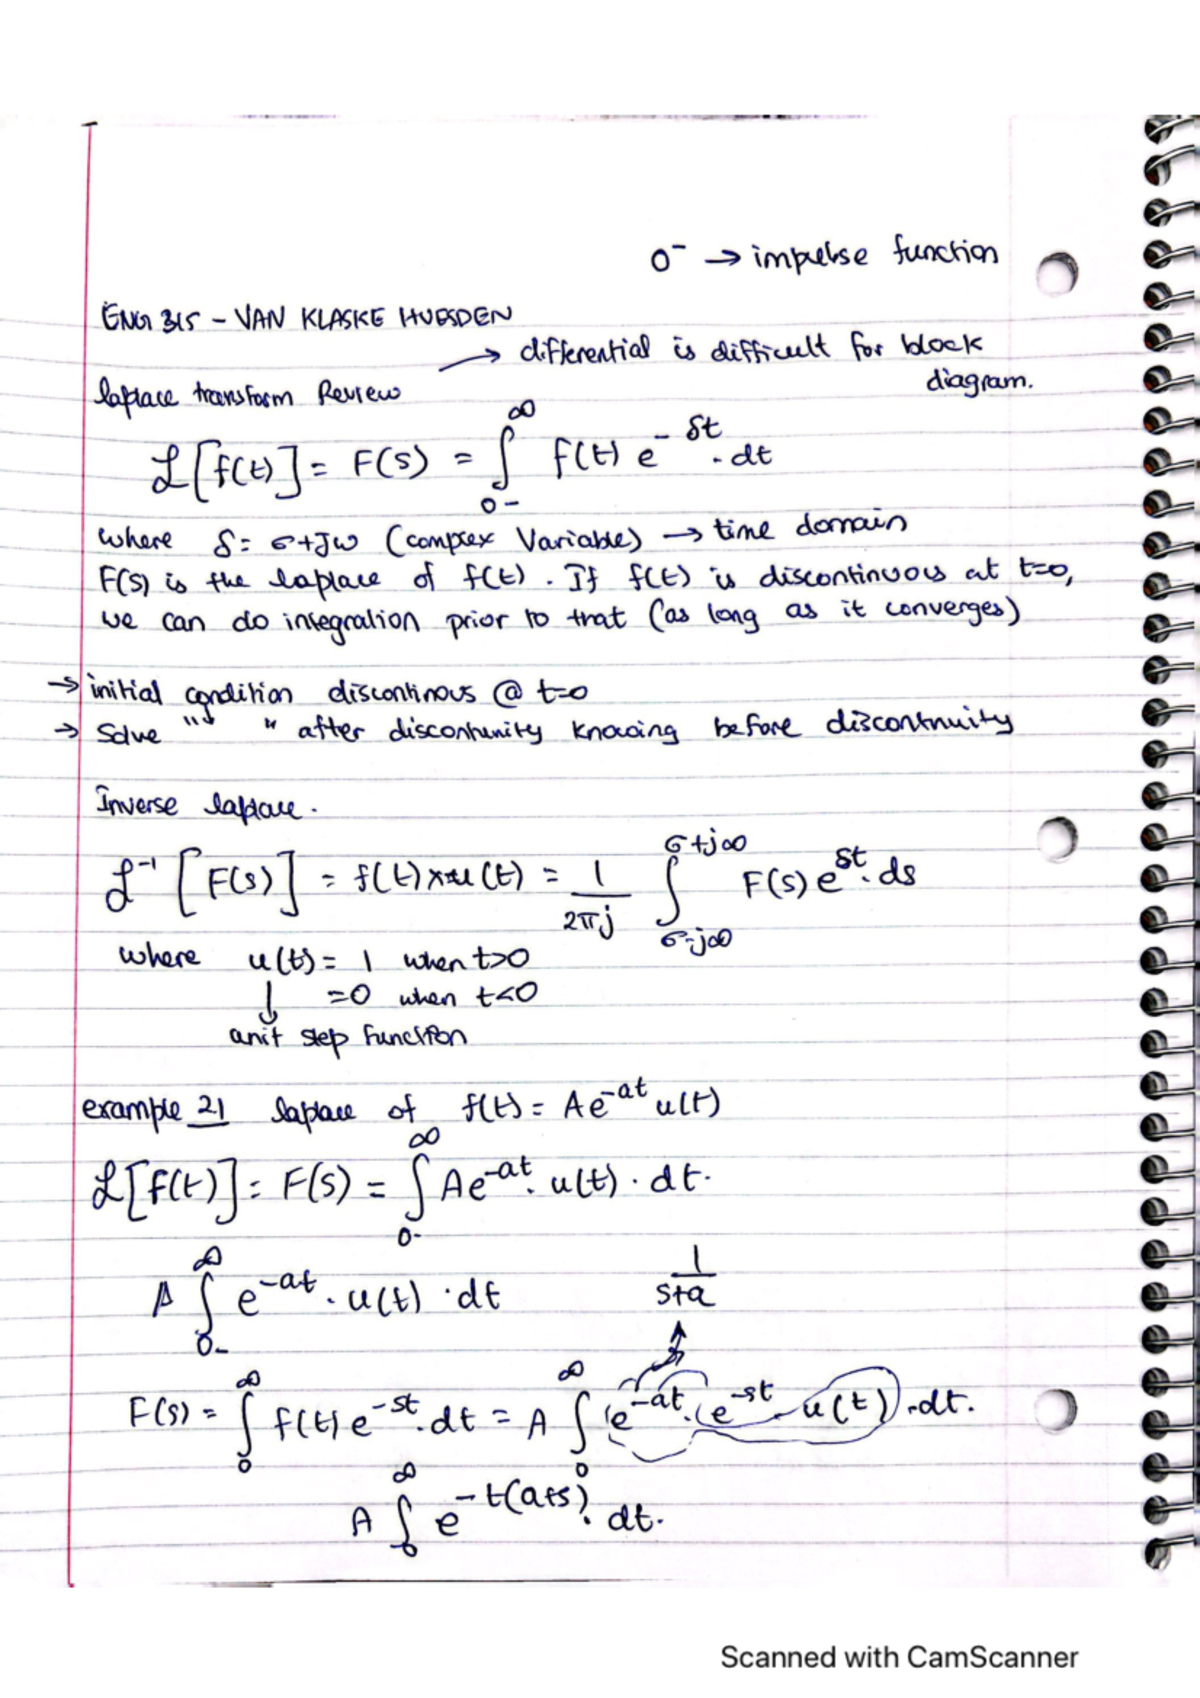 0⁻ → impulse function
ENGI 315 - VAN KLASKE HUESDEN
→ differential is difficult for block
diagram.
laplace transform Review
ℒ[f(t)] = F(s) = ∫₀₋^∞ f(t) e^{-st} . dt
where s = σ+jω (complex Variable) → time domain
F(s) is the laplace of f(t). If f(t) is discontinuous at t=0,
we can do integration prior to that (as long as it converges)
→ initial condition discontinous @ t=0
→ Solve " " after discontunity knowing before discontnuity
Inverse laplace.
ℒ⁻¹ [F(s)] = f(t) u(t) = 1/2πj ∫_{σ-j∞}^{σ+j∞} F(s) e^{st} . ds
where u(t) = 1 when t>0
↓ =0 when t<0
unit step function
example 21 laplace of f(t) = Ae^{-at} u(t)
ℒ[f(t)] = F(s) = ∫₀₋^∞ Ae^{-at} . u(t) . dt.
A ∫₀₋^∞ e^{-at} . u(t) . dt 1/s+a
F(s) = ∫₀^∞ f(t) e^{-st} . dt = A ∫₀^∞ (e^{-at} . (e^{-st} . u(t)) . dt.
A ∫₀^∞ e^{-t(a+s)} . dt.
Scanned with CamScanner